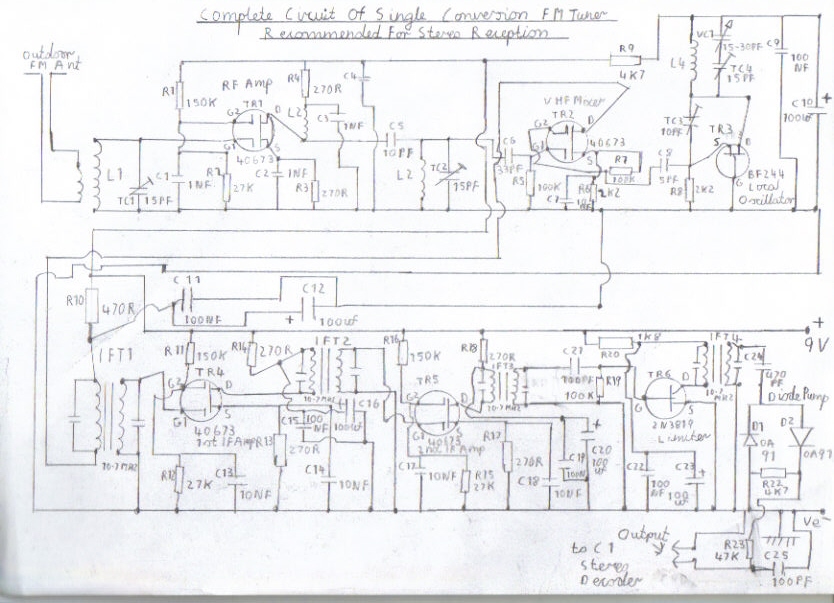 Complete Circuit Of Single Conversion FM Tuner
Recommended For Stereo Reception
Outdoor
FM Ant
L1
TC1
15PF
R1
150K
C1
1NF
RF Amp
TR1
G2
D
G1
S
40673
27K
C2
1NF
R3
270R
R4
270R
L2
C3
1NF
C4
C5
10PF
L2
TC2
15PF
C6
33PF
R5
100K
VHF Mixer
TR2
G2
D
G1
S
40673
R7
C7
R6
2K2
R9
4K7
C8
5PF
R8
2K2
L4
VC1
15-30PF
TC4
15PF
TC3
10PF
TR3
S
G
BF244
Local
Oscillator
C9
100
NF
C10
100uf
+
R10
470R
C11
100NF
C12
+
100uf
IFT1
10-7MHZ
R11
150K
TR4
G2
D
G1
S
40673
1st IF Amp
R12
27K
C13
10NF
R13
270R
R14
270R
IFT2
10-7MHZ
C15
100
NF
C16
100uf
C14
10NF
R16
150K
TR5
G2
D
G1
S
40673
2nd IF Amp
C17
10NF
R15
27K
R17
270R
C18
10NF
R18
270R
IFT3
10-7MHZ
C19
10NF
C20
100
uf
+
C21
100PF
R19
100K
R20
1K8
TR6
D
S
2N3819
Limiter
C22
100
NF
C23
100
uf
+
IFT4
10-7
MHZ
C24
470
PF
+
9V
Diode Pump
D1
OA
91
D2
OA91
R22
4K7
Ve-
R23
47K
C25
100PF
Output
to C1
Stereo
Decoder